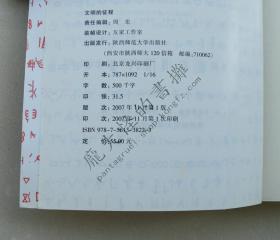 文明的征程
责任编辑：周 宏
装帧设计：友家工作室
出版发行：陕西师范大学出版社
（西安市陕西师大120信箱 邮编:710062）
印 刷：北京龙兴印刷厂
开 本：787×1092 1/16
字 数：500千字
印 张：31.5
版 次：2007年11月第1版
印 次：2007年11月第1次印刷
ISBN 978-7-5613-3822-3
定 价：55.00元